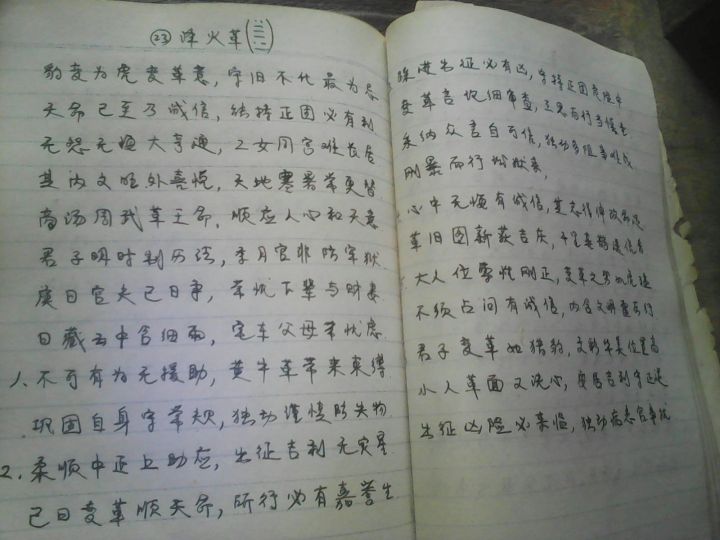 ㉓ 泽火革(☱☲)
豹变为虎变革意，守旧不化最为忌
天命已至乃诚信，维持正固必有利
无怨无悔大亨通，二女同宫难长居
其内文明外喜悦，天地寒暑常更替
商汤周武革王命，顺应人心和天意
君子明时制历法，季月官非防牢狱
庚日官夫己日事，常忧下辈与财妻
日藏云中含细雨，宅车父母常忧虑
1、不可有为无援助，黄牛革带来束缚
巩固自身守常规，独动谨慎防失物
2、柔顺中正上助应，出征吉利无灾星
己日变革顺天命，所行必有嘉誉生
躁进出征必有凶，守持正固危险中
变革言论细审查，三思而行当慎重
采纳众言自可信，独动多阻事难成
刚暴而行
心中无悔有诚信，
革旧图新获吉庆，
大人位尊性刚正，变革之势
不须占问有诚信，内含文明
君子变革如猎豹，文彩华美位置高
小人革面又洗心，安居吉利守正
出征凶险必来临，独动病恙官事扰